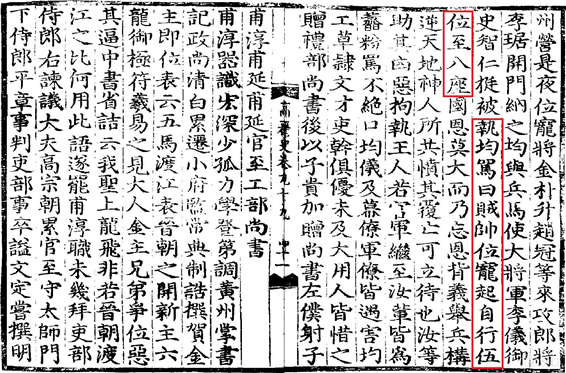 州營是夜位寵將金朴升趙冠等來攻郎將
李琚開門納之均與兵馬使大將軍李儀御
史智仁挺被執均罵曰賊帥位寵起自行伍
位至八座國恩莫大而乃忘恩背義舉兵構
逆天地神人所共憤其覆亡可立待也汝等
助其凶惡拘執王人若官軍繼至汝輩皆爲
虀粉罵不絶口均儀及幕僚軍僚皆遇害均
工草隷文才吏幹俱優未及大用人皆惜之
贈禮部尚書後以子貴加贈尚書左僕射子
高麗史卷九十九
甫淳甫延甫延官至工部尚書
甫淳器識宏深少孤力學登第調黃州掌書
記政尚清白累遷小府監常典制誥撰賀金
主即位表云五馬渡江表晉朝之開新主六
龍御極符羲易之見大人金主兄弟爭位惡
其逼中書省詰云我聖上龍飛非若晉朝渡
江之比何用此語遂罷甫淳職未幾拜吏部
侍郎右諫議大夫高宗朝累官至守太師門
下侍郎平章事判吏部事卒謚文定嘗撰明